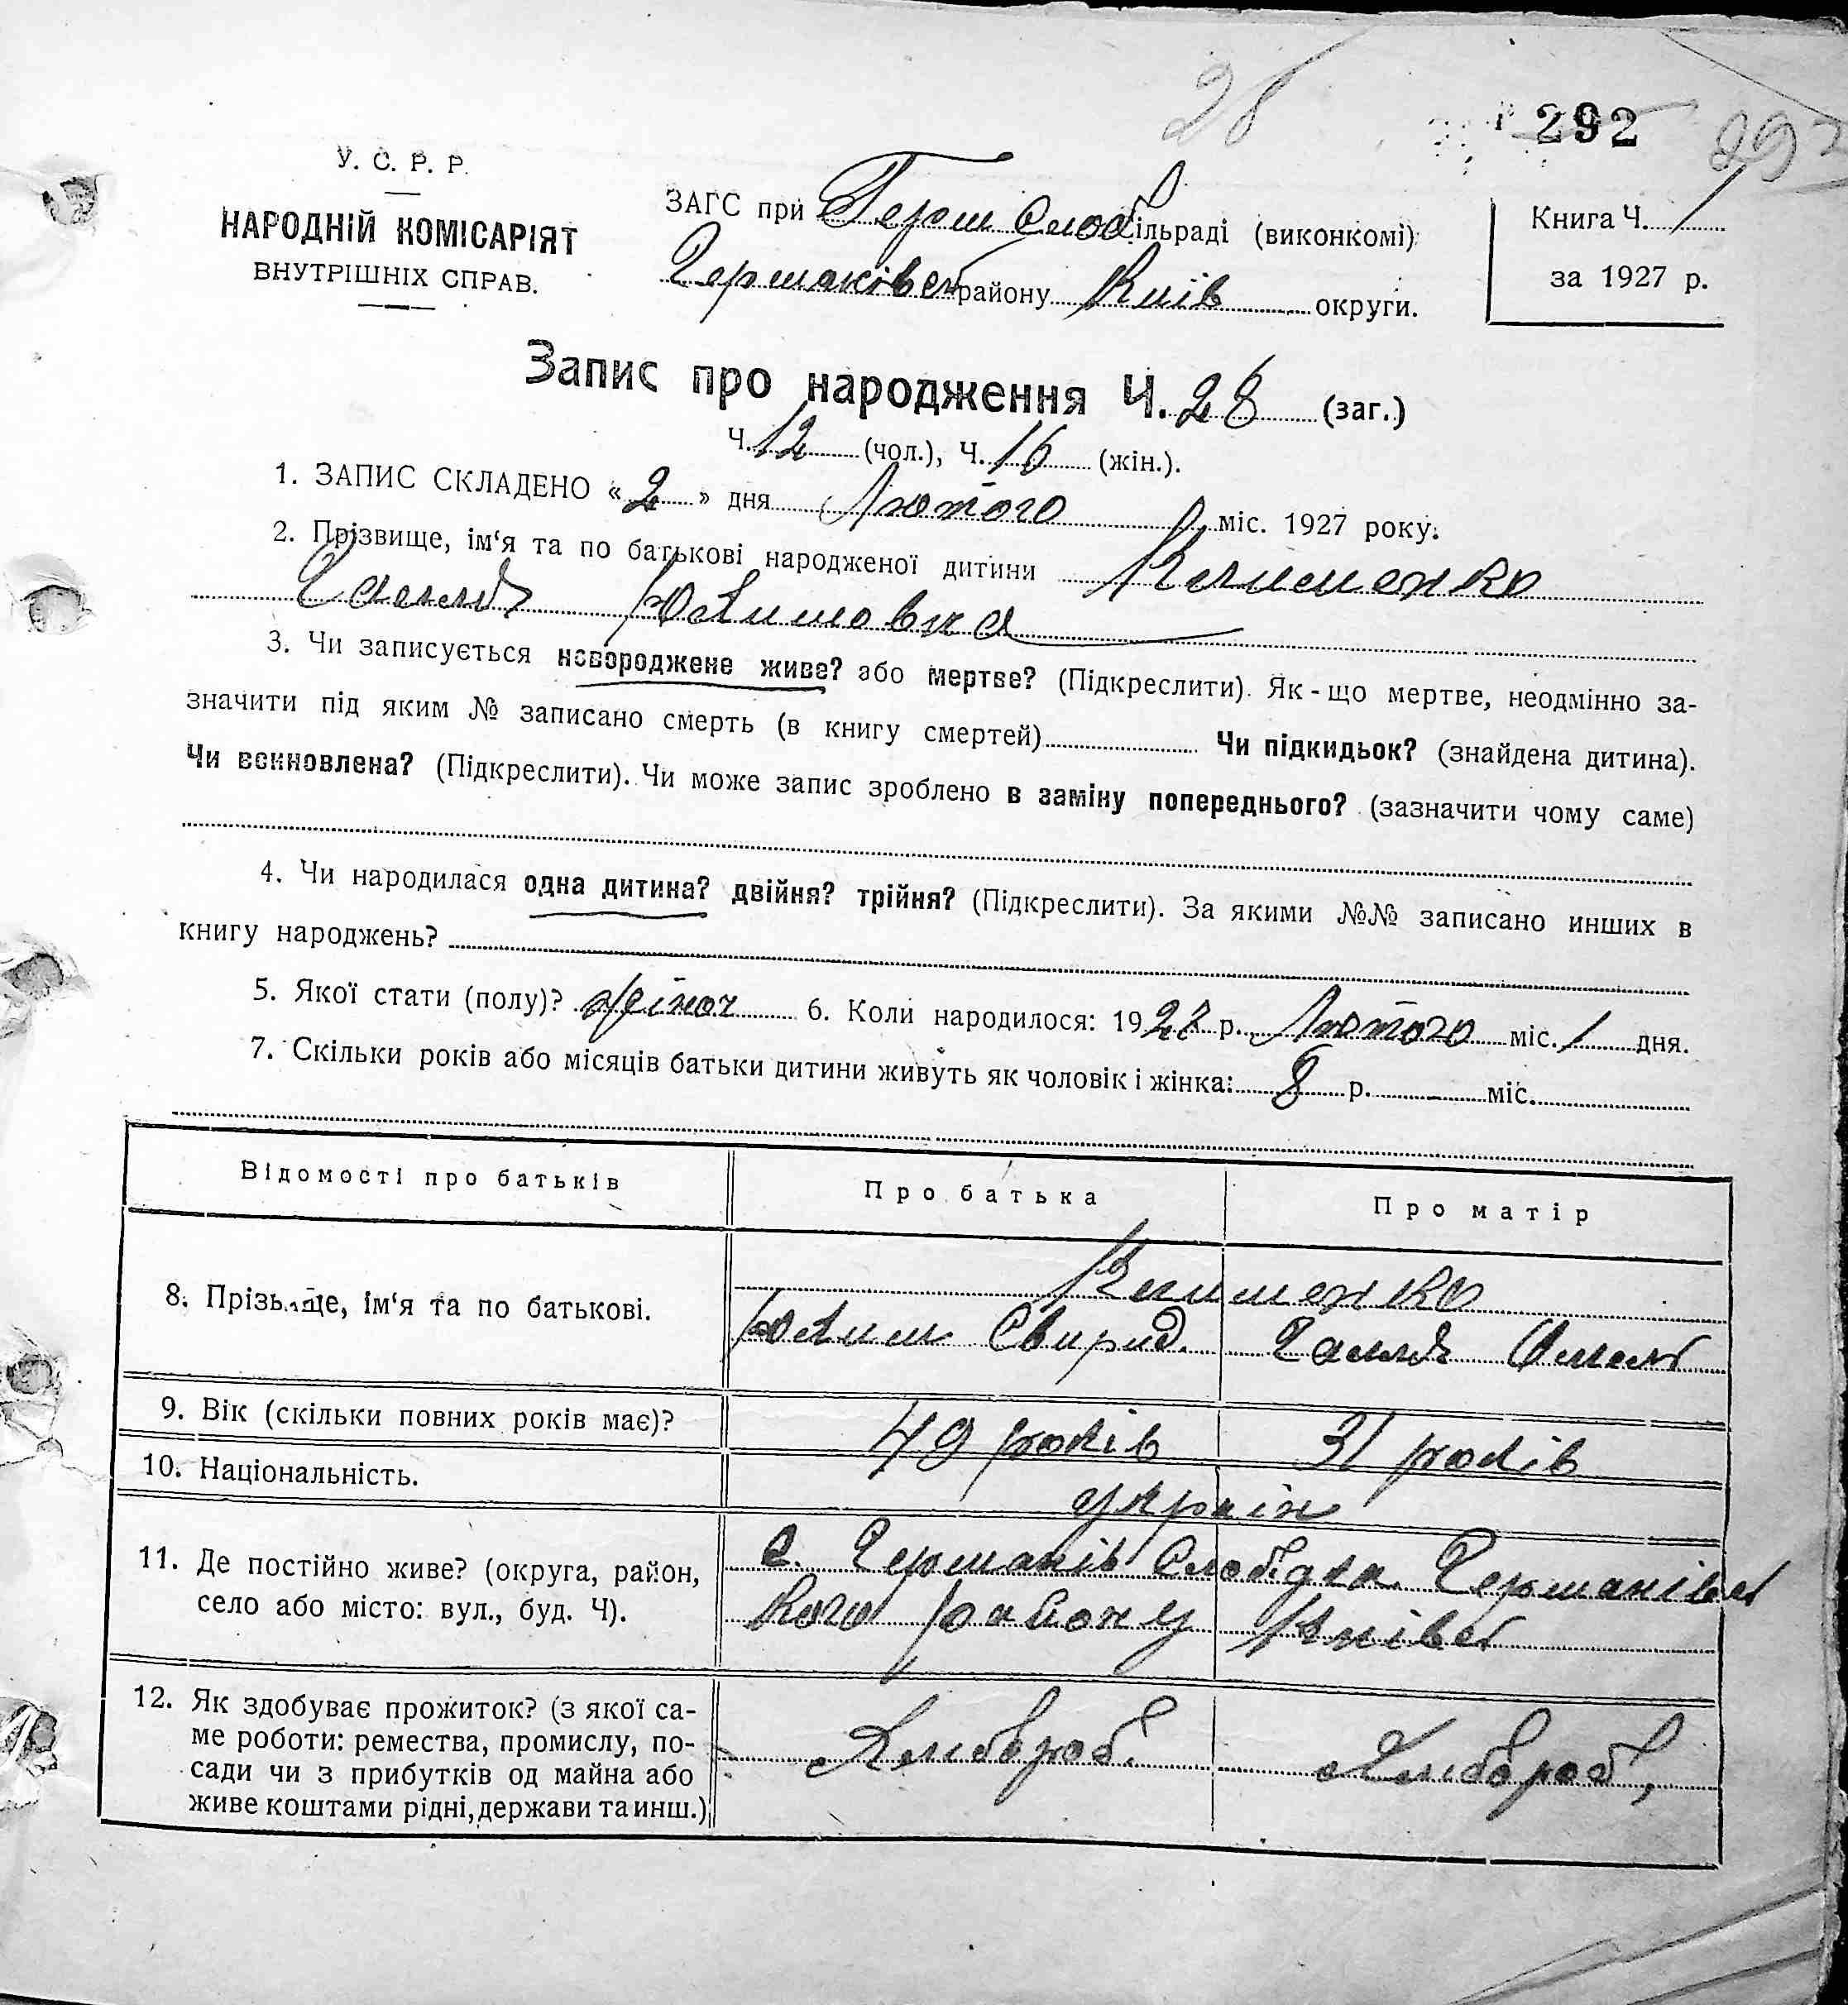 28
292
293
У. С. Р. Р.
НАРОДНІЙ КОМІСАРІЯТ
ВНУТРІШНІХ СПРАВ.
ЗАГС при Герм Слоб ільраді (виконкомі)
Германівськ району Київ округи.
Книга Ч. 1
за 1927 р.
Запис про народження Ч. 28 (заг.)
Ч. 12 (чол.), Ч. 16 (жін.).
1. ЗАПИС СКЛАДЕНО « 2 » дня Лютого міс. 1927 року.
2. Прізвище, ім‘я та по батькові народженої дитини Клименко
Якимовна
3. Чи записується новороджене живе? або мертве? (Підкреслити). Як-що мертве, неодмінно за-
значити під яким № записано смерть (в книгу смертей) Чи підкидьок? (знайдена дитина).
Чи всиновлена? (Підкреслити). Чи може запис зроблено в заміну попереднього? (зазначити чому саме)
4. Чи народилася одна дитина? двійня? трійня? (Підкреслити). За якими №№ записано инших в
книгу народжень?
5. Якої стати (полу)? жіноч 6. Коли народилося: 1927 р. Лютого міс. 1 дня.
7. Скільки років або місяців батьки дитини живуть як чоловік і жінка: 8 р. міс.
Відомості про батьків
Про батька
Про матір
8. Прізвище, ім‘я та по батькові.
Клименко
Яким Свирид.
Омел
9. Вік (скільки повних років має)?
49 років
31 років
10. Національність.
україн
11. Де постійно живе? (округа, район,
село або місто: вул., буд. Ч).
с. Германів Слобідка Германівс
кого району Київс
12. Як здобуває прожиток? (з якої са-
ме роботи: ремества, промислу, по-
сади чи з прибутків од майна або
живе коштами рідні, держави та инш.)
Хлибороб.
Хлибороб,